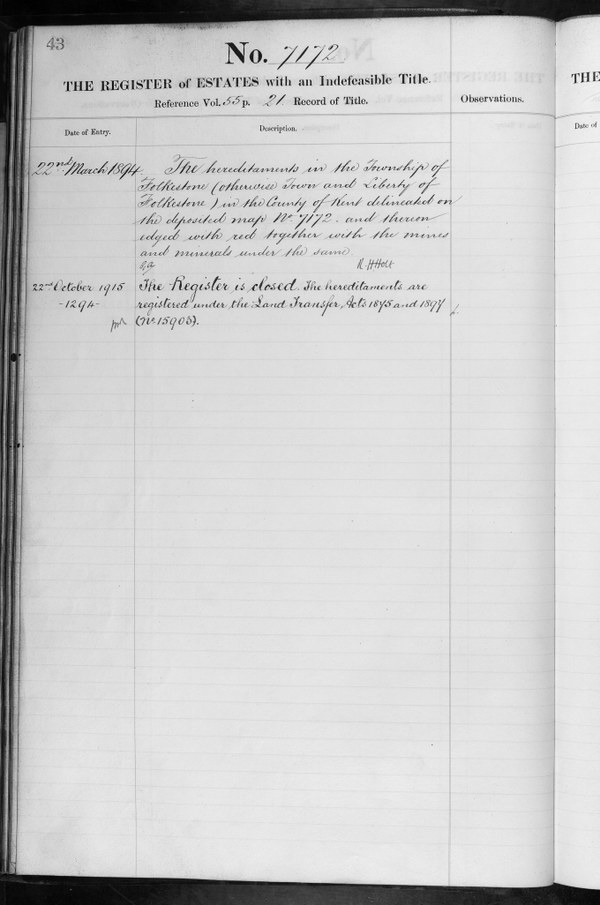 43
No. 7172
THE REGISTER of ESTATES with an Indefeasible Title.
Reference Vol. 55 p. 21 Record of Title.
Observations.
Date of Entry.
Description.
22nd March 1894.
The hereditaments in the Township of
Folkestone (otherwise Town and Liberty of
Folkestone) in the County of Kent delineated on
the deposited map No. 7172. and thereon
edged with red together with the mines
and minerals under the same.
R H Holt
22nd October 1915
-1294-
The Register is closed. The hereditaments are
registered under the Land Transfer Acts 1875 and 1897
(No. 15903).
THE
Date of